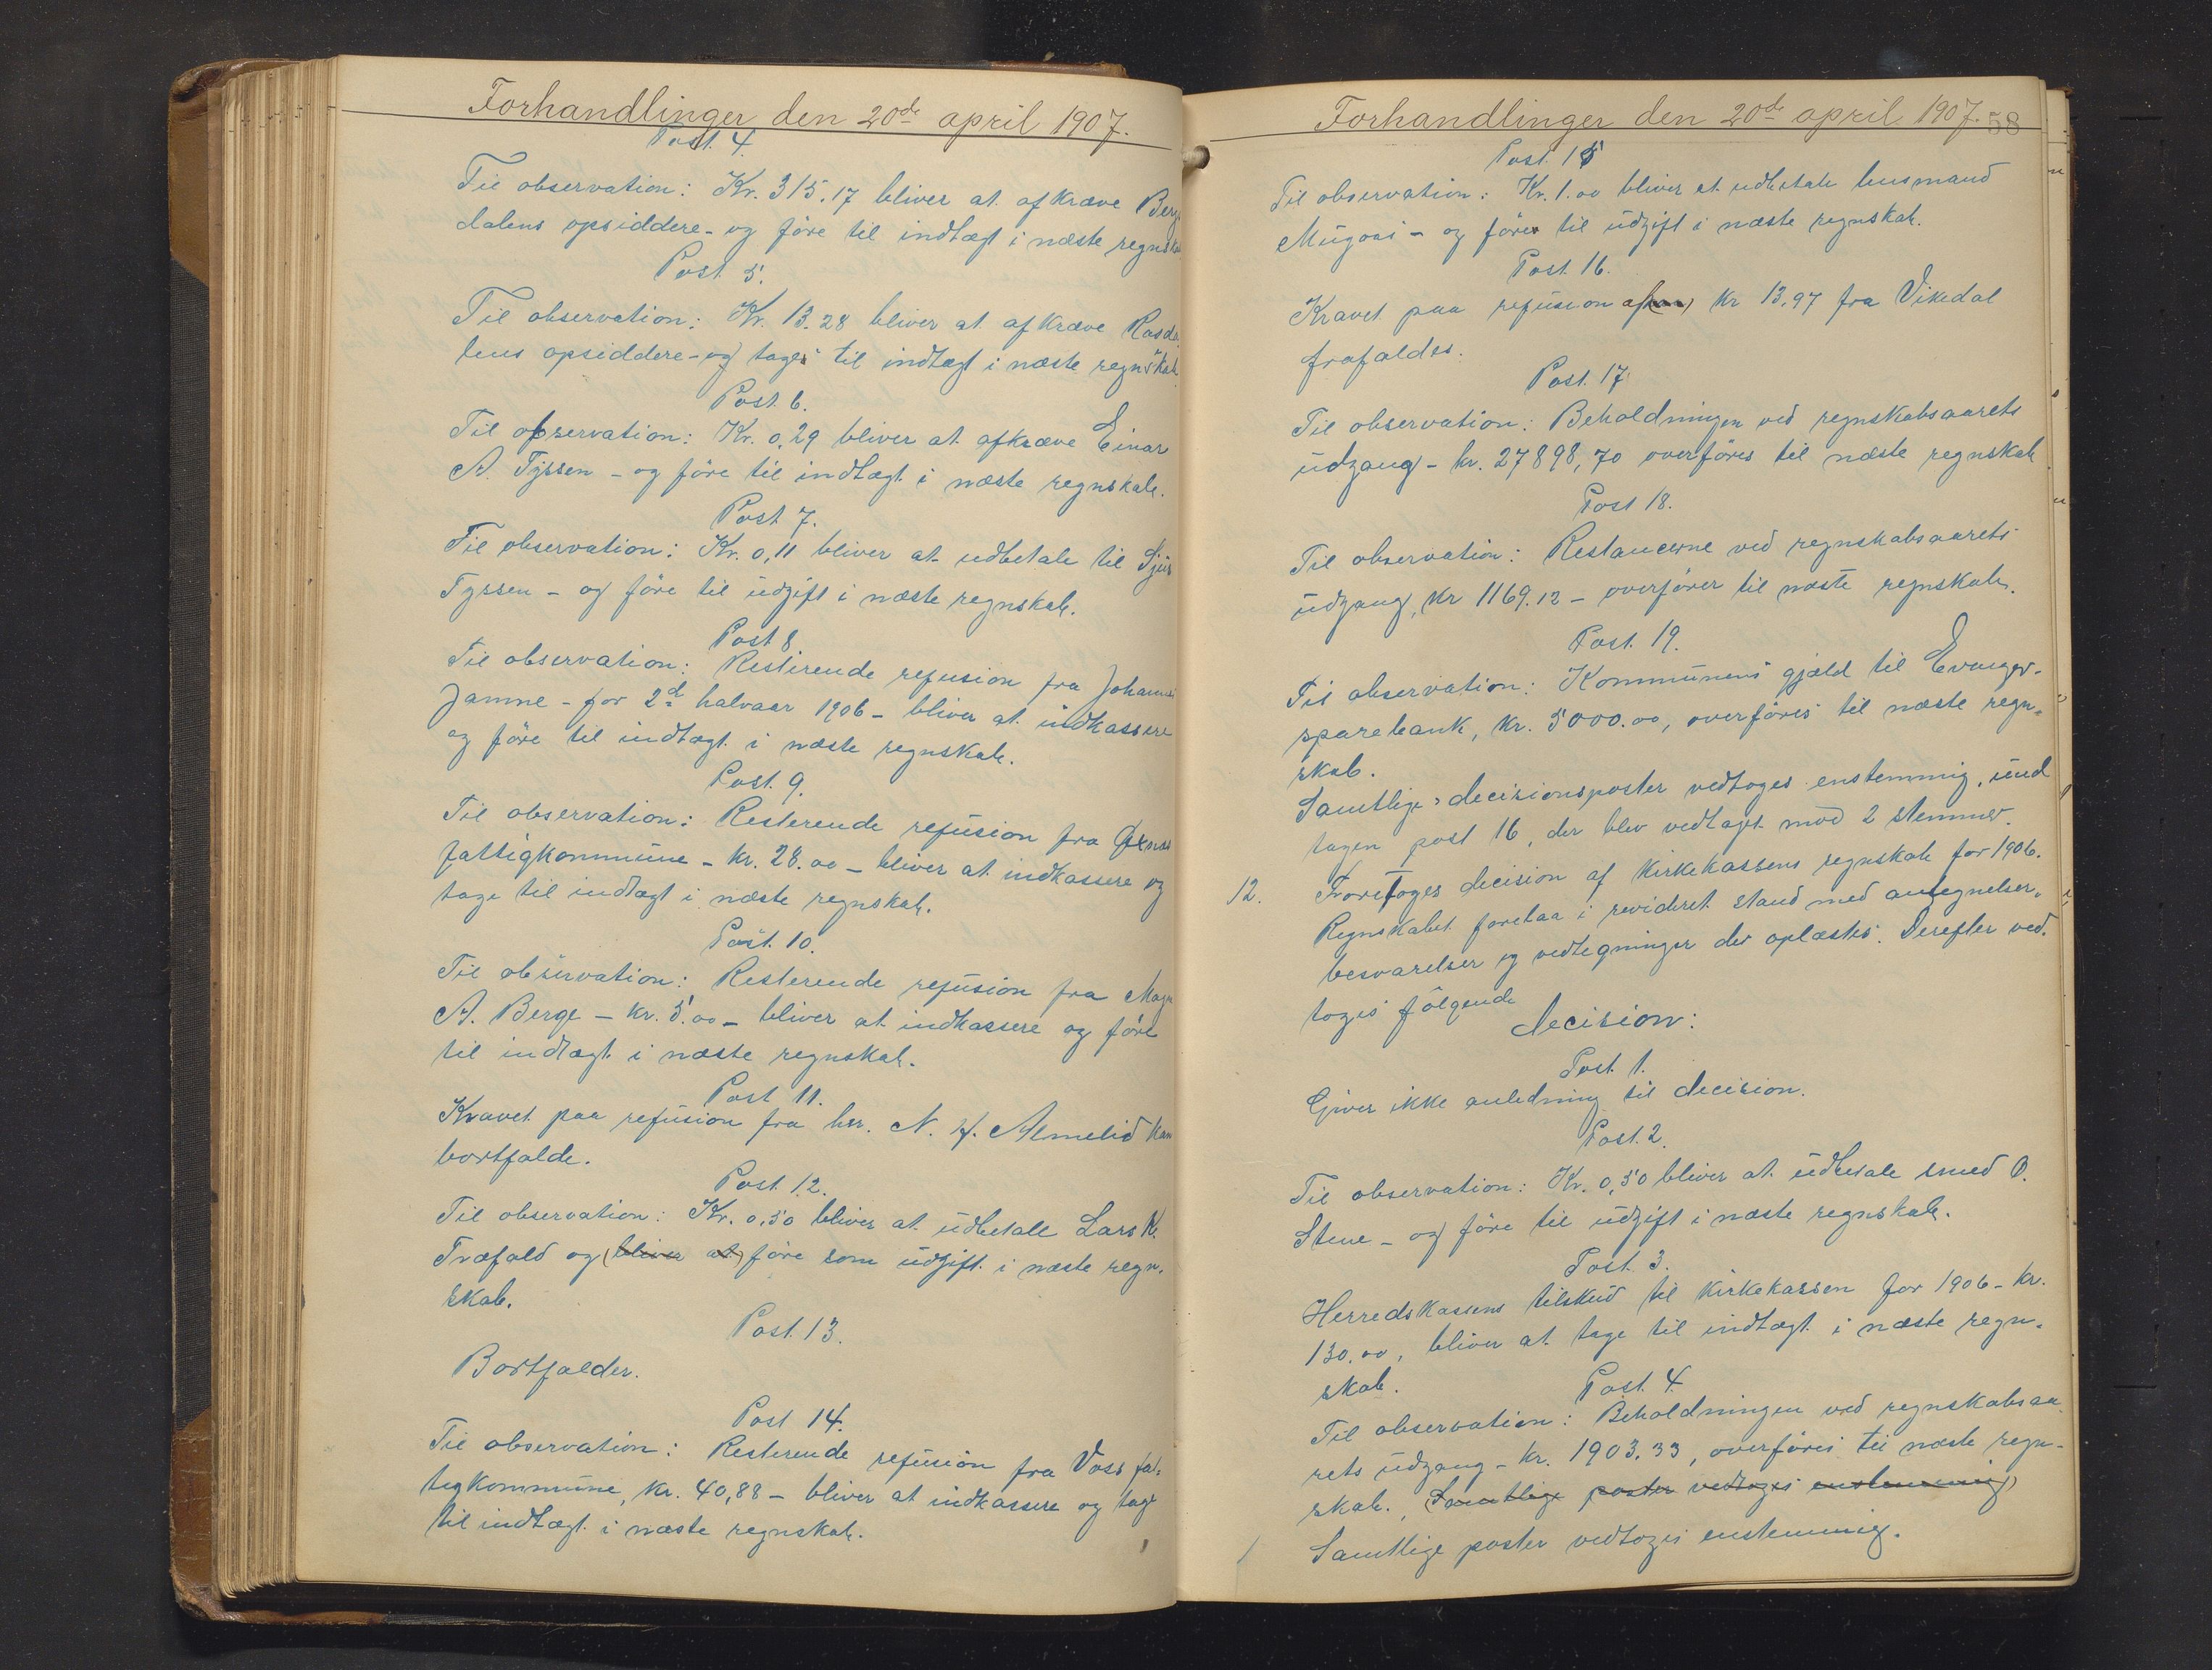 Forhandlinger den 20de april 1907.
Post. 4.
Til observation: Kr. 315.17 bliver at afkræve Berg
dalens opsiddere - og føre til indtægt i næste regnskab
Post. 5.
Til observation: Kr. 13.28 bliver at afkræve Rasda
lens opsiddere - og tages til indtægt i næste regnskab
Post. 6.
Til observation: Kr. 0,29 bliver at afkræve Einar
A. Tyssen - og føre til indtægt i næste regnskab.
Post 7.
Til observation: Kr. 0,11 bliver at udbetale til Sjur
Tyssen - og føre til udgift i næste regnskab.
Post 8
Til observation: Restirende refusion fra Johannes
Jamne - for 2d halvaar 1906 - bliver at indkassere
og føre til indtægt i næste regnskab.
Post. 9.
Til observation: Resterende refusion fra
fattigkommune - kr. 28.00 - bliver at indkassere og
tage til indtægt i næste regnskab.
Post. 10.
Til observation: Resterende refusion fra Magn
A. Berge - kr. 5.00 - bliver at indkassere og føre
til indtægt i næste regnskab.
Post 11.
Kravet paa refusion fra hr. N. H. Almelid kan
bortfalde.
Post 12.
Til observation: Kr. 0,50 bliver at udbetale Lars K.
Træfald og (bliver at) føre som udgift i næste regn-
skab.
Post. 13.
Bortfalder.
Post 14.
Til observation: Resterende refusion fra Voss fat-
tigkommune, kr. 40,88 - bliver at indkassere og tage
til indtægt i næste regnskab.
Forhandlinger den 20de april 1907. 58
Post. 15
Til observation: Kr. 1.00 bliver at udbetale husmand
Mugaas - og føres til udgift i næste regnskab.
Post. 16.
Kravet paa refusion af kr 13.97 fra Vikedal
frafaldes.
Post. 17
Til observation: Beholdningen ved regnskabsaarets
udgang - kr. 27898,70 overføres til næste regnskab
Post 18.
Til observation: Restancerne ved regnskabsaarets
udgang, kr 1169.12 - overføres til næste regnskab.
Post. 19.
Til observation: Kommunens gjæld til Evanger-
sparebank, kr. 5000.00, overføres til næste regn-
skab.
Samtlige decisionsposter vedtoges enstemmig, und
tagen post 16, der blev vedtaget mod 2 stemmer.
12. Foretoges decision af kirkekassens regnskab for 1906.
Regnskabet forelaa i revideret stand med antegnelser,
besvarelser og vedtegninger der oplæstes. Derefter ved-
toges følgende
decision:
Post. 1.
Giver ikke anledning til decision.
Post. 2.
Til observation: Kr. 0,50 bliver at udbetale smed O.
Stene - og føre til udgift i næste regnskab.
Post. 3.
Herredskassens tilskud til kirkekassen for 1906 - kr.
130.00, bliver at tage til indtægt i næste regn-
skab.
Post. 4
Til observation: Beholdningen ved regnskabsaa
rets udgang - kr. 1903.33, overføres til næste regn-
skab. (Samtlige poster vedtoges enstemmig)
Samtlige poster vedtoges enstemmig.